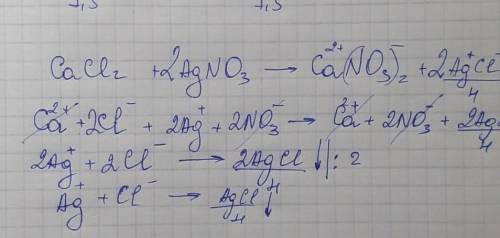 CaCl₂ + 2AgNO₃ → Ca²⁺(NO₃)⁻₂ + 2Ag⁺Cl⁻ н
Ca²⁺ + 2Cl⁻ + 2Ag⁺ + 2NO₃⁻ → Ca²⁺ + 2NO₃⁻ + 2Ag н
2Ag⁺ + 2Cl⁻ → 2AgCl↓ | : 2
Ag⁺ + Cl⁻ → AgCl↓ н